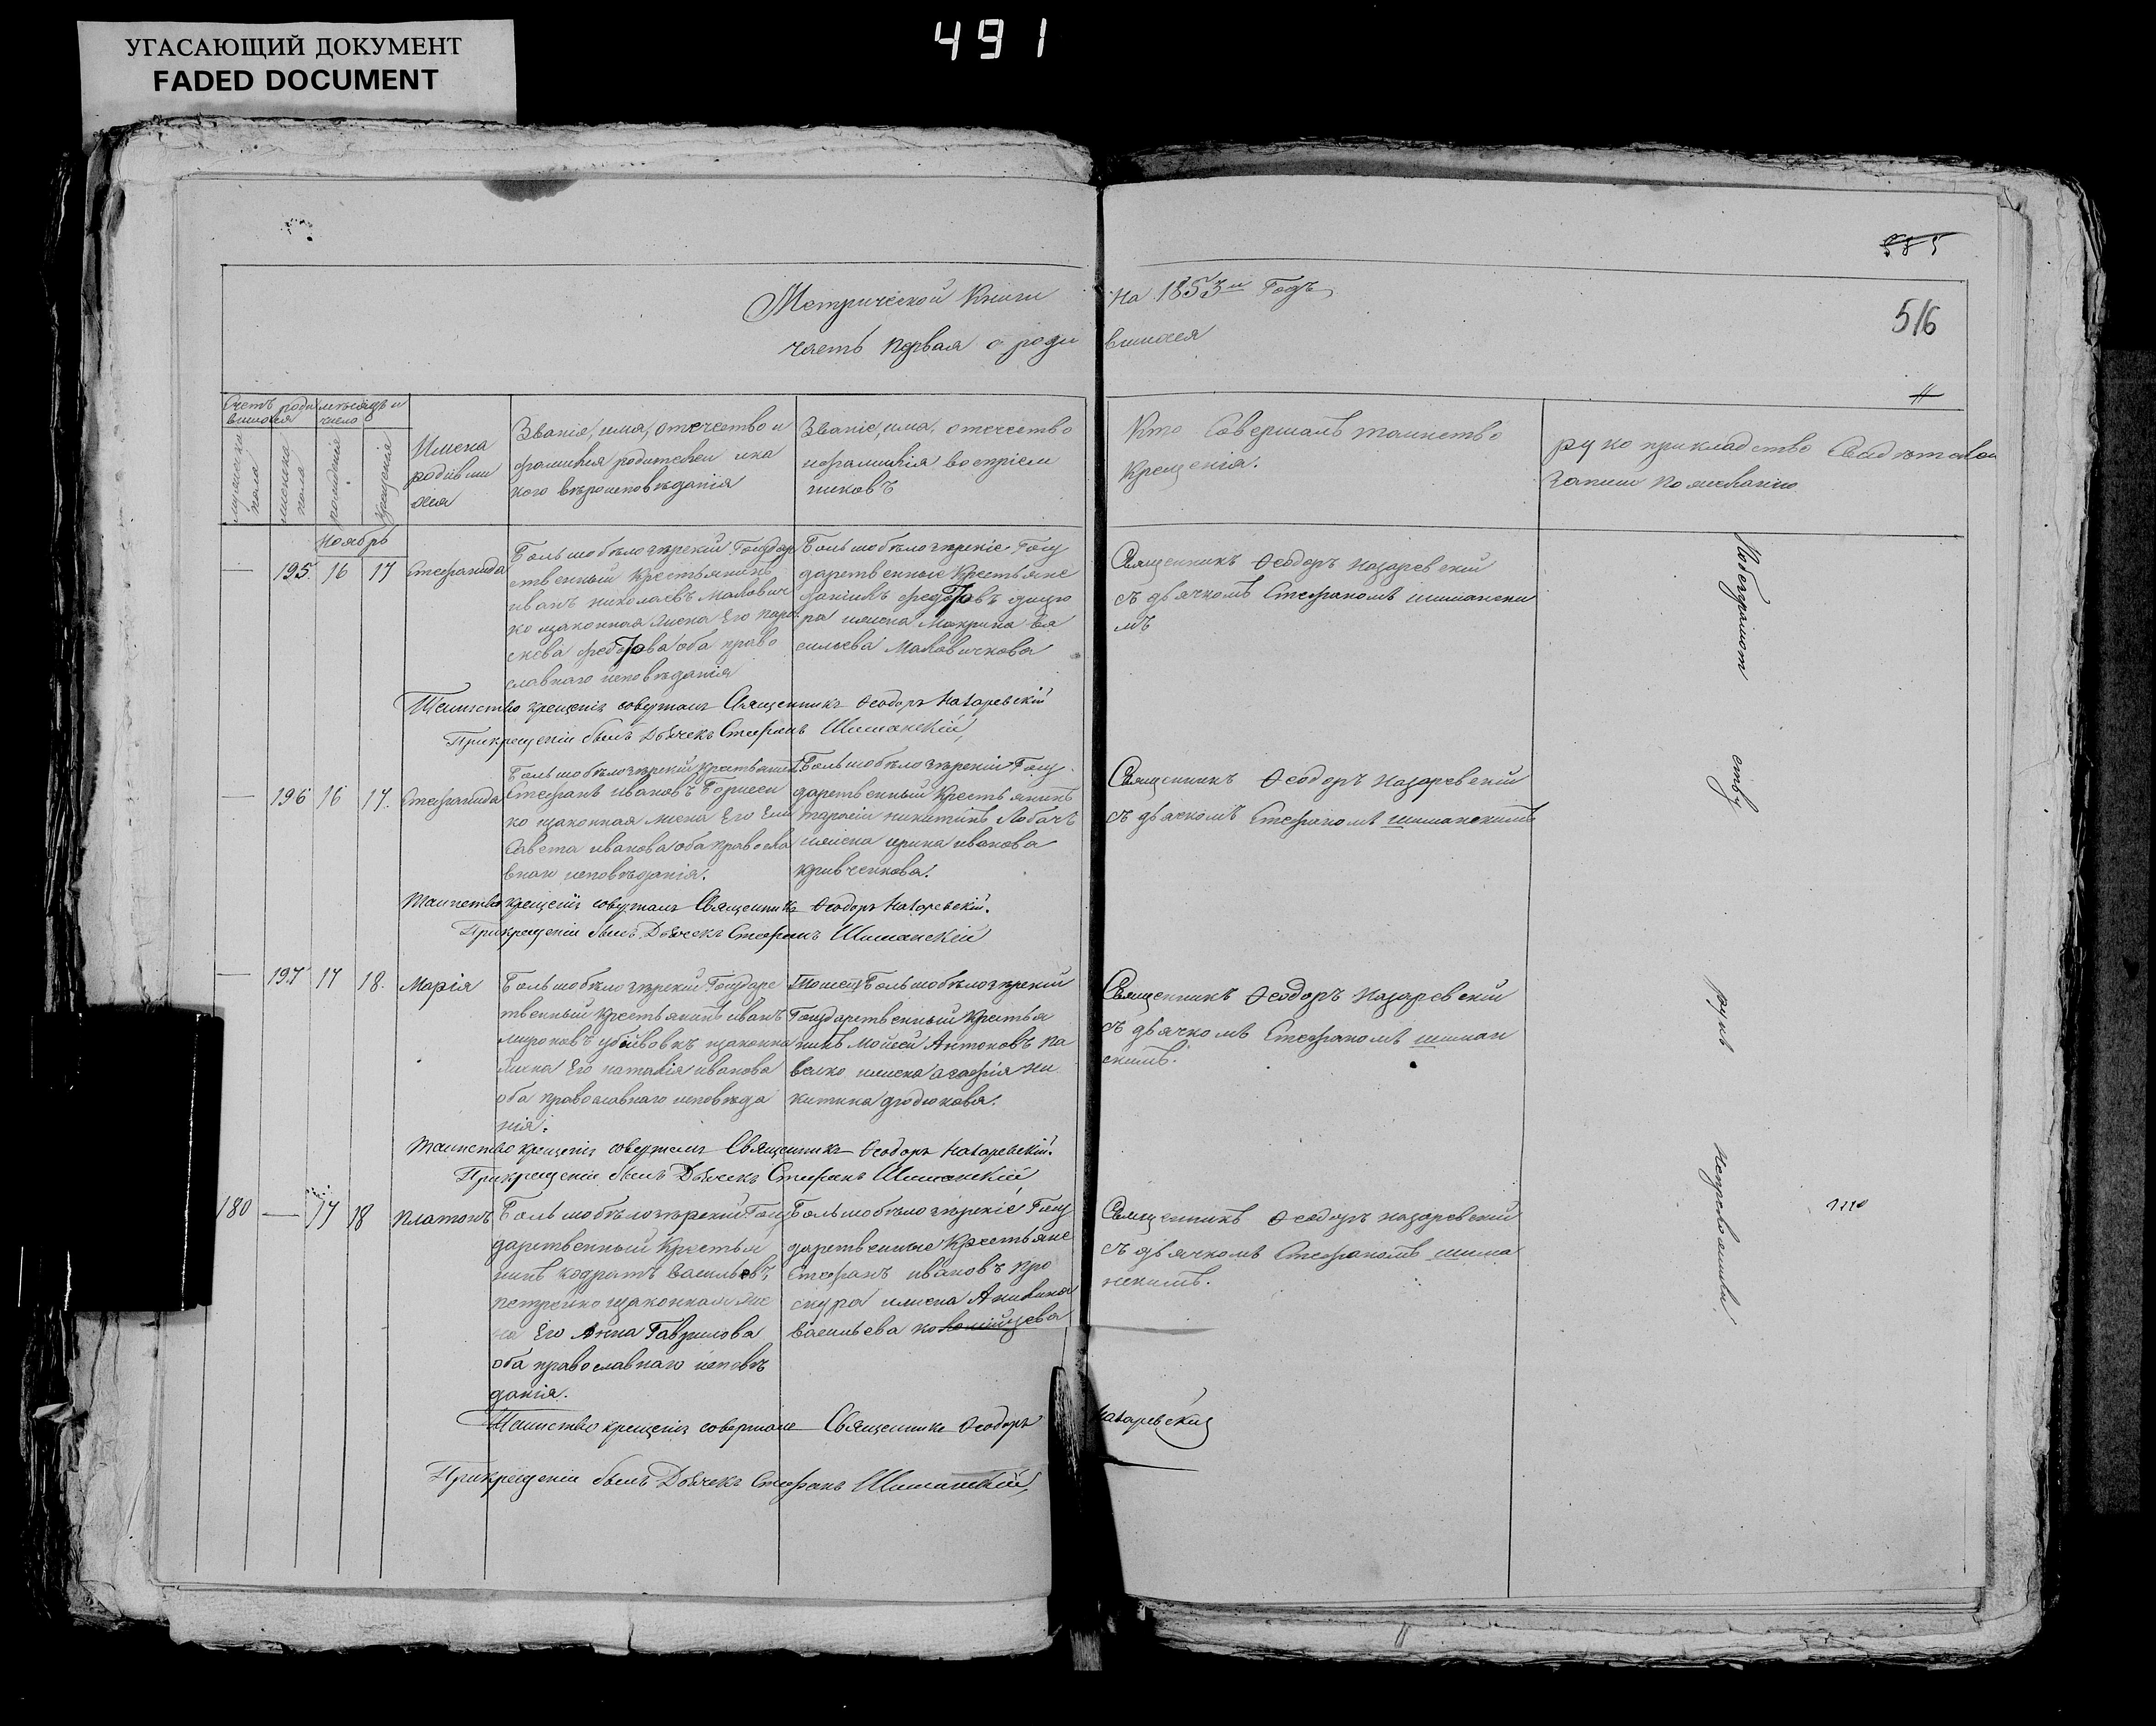 491
УГАСАЮЩИЙ ДОКУМЕНТ
FADED DOCUMENT
585
516
Метрической Книги на 1853й Годъ
часть первая о роди вшихся
Счетъ роди вшихся
мѣсяцъ и число
мужеска пола
женска пола
рожденія
крещенія
Имена родивши хся
Званіе, имя, отечество и
фамилія родителей и ка
кого вѣроисповѣданія
Званіе, имя, отечество
и фамилія воспріем
никовъ
Кто Совершалъ таинство
Крещенія.
рукоприкладство Свидѣтелей
Записи по желанію
Ноябрь
— 195. 16 17 Стефанида
Большобѣлозѣрскій Государ
ственный Крестьянинъ
иванъ николаевъ Малович
ко изаконная жена Его пара
скева федотова оба право
славнаго исповѣданія
Большобѣлозѣрскіе Госу
дарственные Крестьяне
даніилъ федотовъ
ижена Макрина Ва
сильева Маловичкова
Священникъ Ѳеодоръ назаревскій
съ дьячкомъ Стефаномъ шимански
мъ
Таинство крещенія совершалъ Священникъ Ѳеодоръ Назаревскій
Прикрещеніи былъ Дьячекъ Стефанъ Шиманскій
— 196 16 17. Стефанида
Большобѣлозѣрскій Крестьянинъ
Стефанъ ивановъ Борисен
ко изаконная жена Его Ели
Савета иванова оба правосла
внаго исповѣданія.
Большобѣлозѣрскій Госу
дарственный Крестьянинъ
тарасій никитинъ Лобачъ
ижена ирина иванова
кривченкова.
Священникъ Ѳеодоръ назаревскій
съ дьячкомъ Стефаномъ шиманскимъ
Таинство крещенія совершалъ Священникъ Ѳеодоръ Назаревскій.
Прикрещеніи былъ Дьячекъ Стефанъ Шиманскій
— 197 17 18. Марія
Большобѣлозѣрскій Государс
твенный Крестьянинъ иванъ
мироновъ убійвовкъ изаконна
жена Его наталія иванова
оба православнаго исповѣда
нія.
Большобѣлозѣрскій
Государственный Крестья
нинъ Моисей Антоновъ Па
велко ижена агафія ни
китина дюдюкова.
Священникъ Ѳеодоръ Назаревскій
съ дьячкомъ Стефаномъ шиман
скимъ.
Таинство крещенія совершалъ Священникъ Ѳеодоръ Назаревскій.
Прикрещеніи былъ Дьячекъ Стефанъ Шиманскій
180 — 17 18 Платонъ
Большобѣлозѣрскій Госу
дарственный Крестья
нинъ кодратъ Васильевъ
петренко изаконная же
на Его Анна Гаврилова
оба православнаго исповѣ
данія.
Большобѣлозѣрскіе Госу
дарственные Крестьяне
Стефанъ ивановъ про
скура ижена Акилина
Васильева коломійцева
Священникъ Ѳеодоръ назаревскій
съ дьячкомъ Стефаномъ шима
нскимъ.
Таинство крещенія совершалъ Священникъ Ѳеодоръ Назаревскій
Прикрещеніи былъ Дьячекъ Стефанъ Шиманскій
Побезграмот ству рукъ неприложили